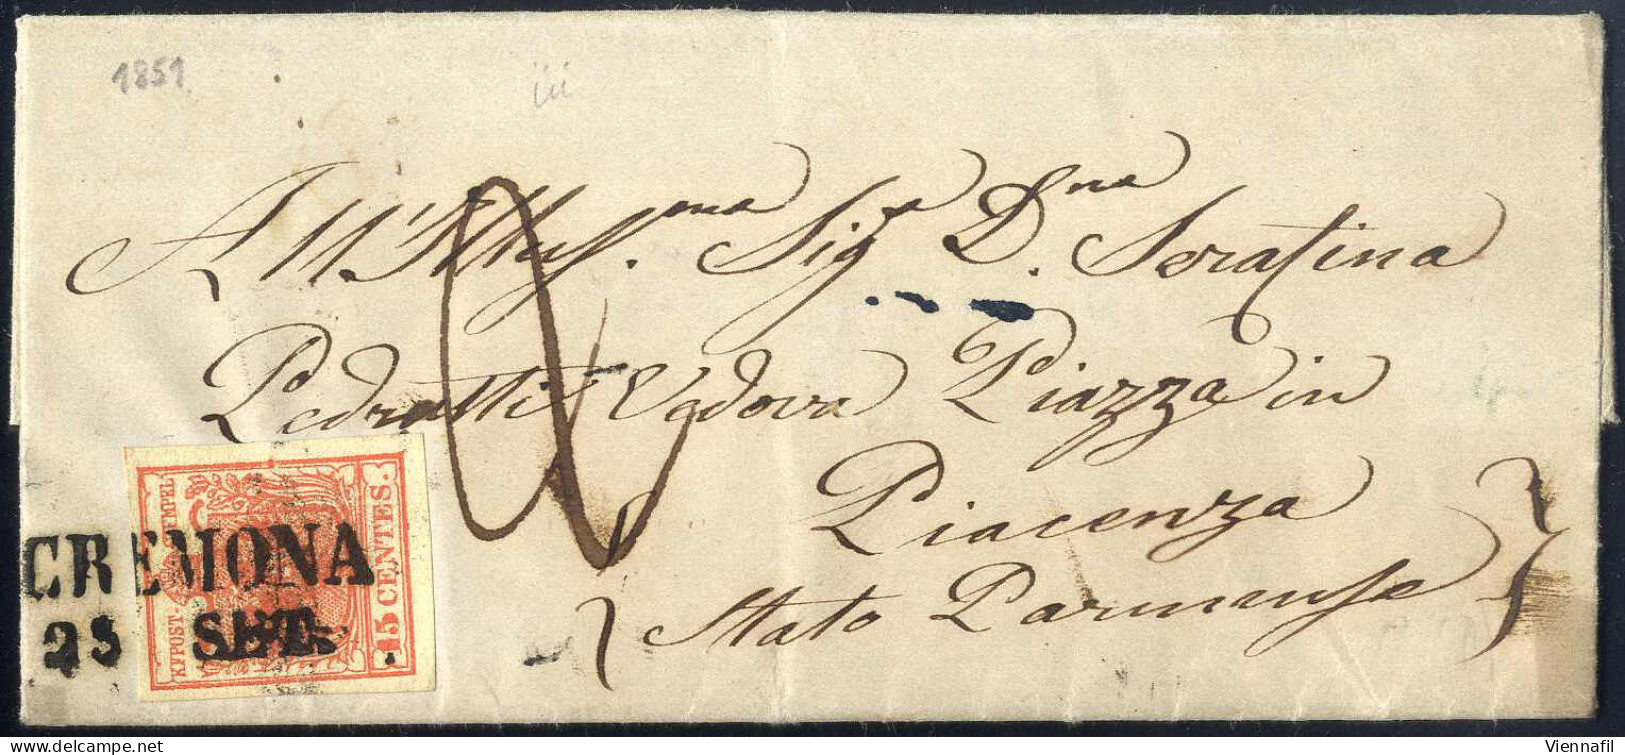 1851
All'Illuss.ma Sig.a D.na Serafina
Pedratti Vedova Piazza in
Piacenza
Stato Parmense
KKPOST-STEMPEL
15 CENTES.
CREMONA
25 SET.
© delcampe.net
Viennafil